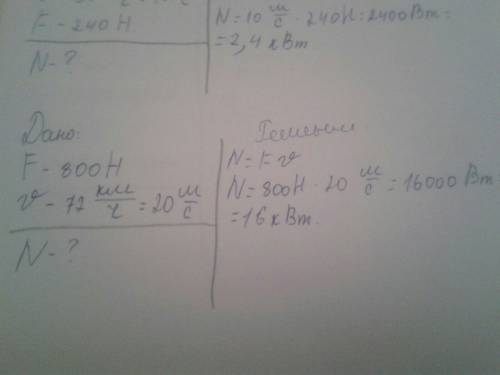 F - 240 Н
N - ?
N = 10 м/с · 240Н = 2400 Вт =
= 2,4 кВт
Дано:
F - 800 Н
v - 72 км/ч = 20 м/с
N - ?
N = Fv
N = 800Н · 20 м/с = 16000 Вт
= 16 кВт.